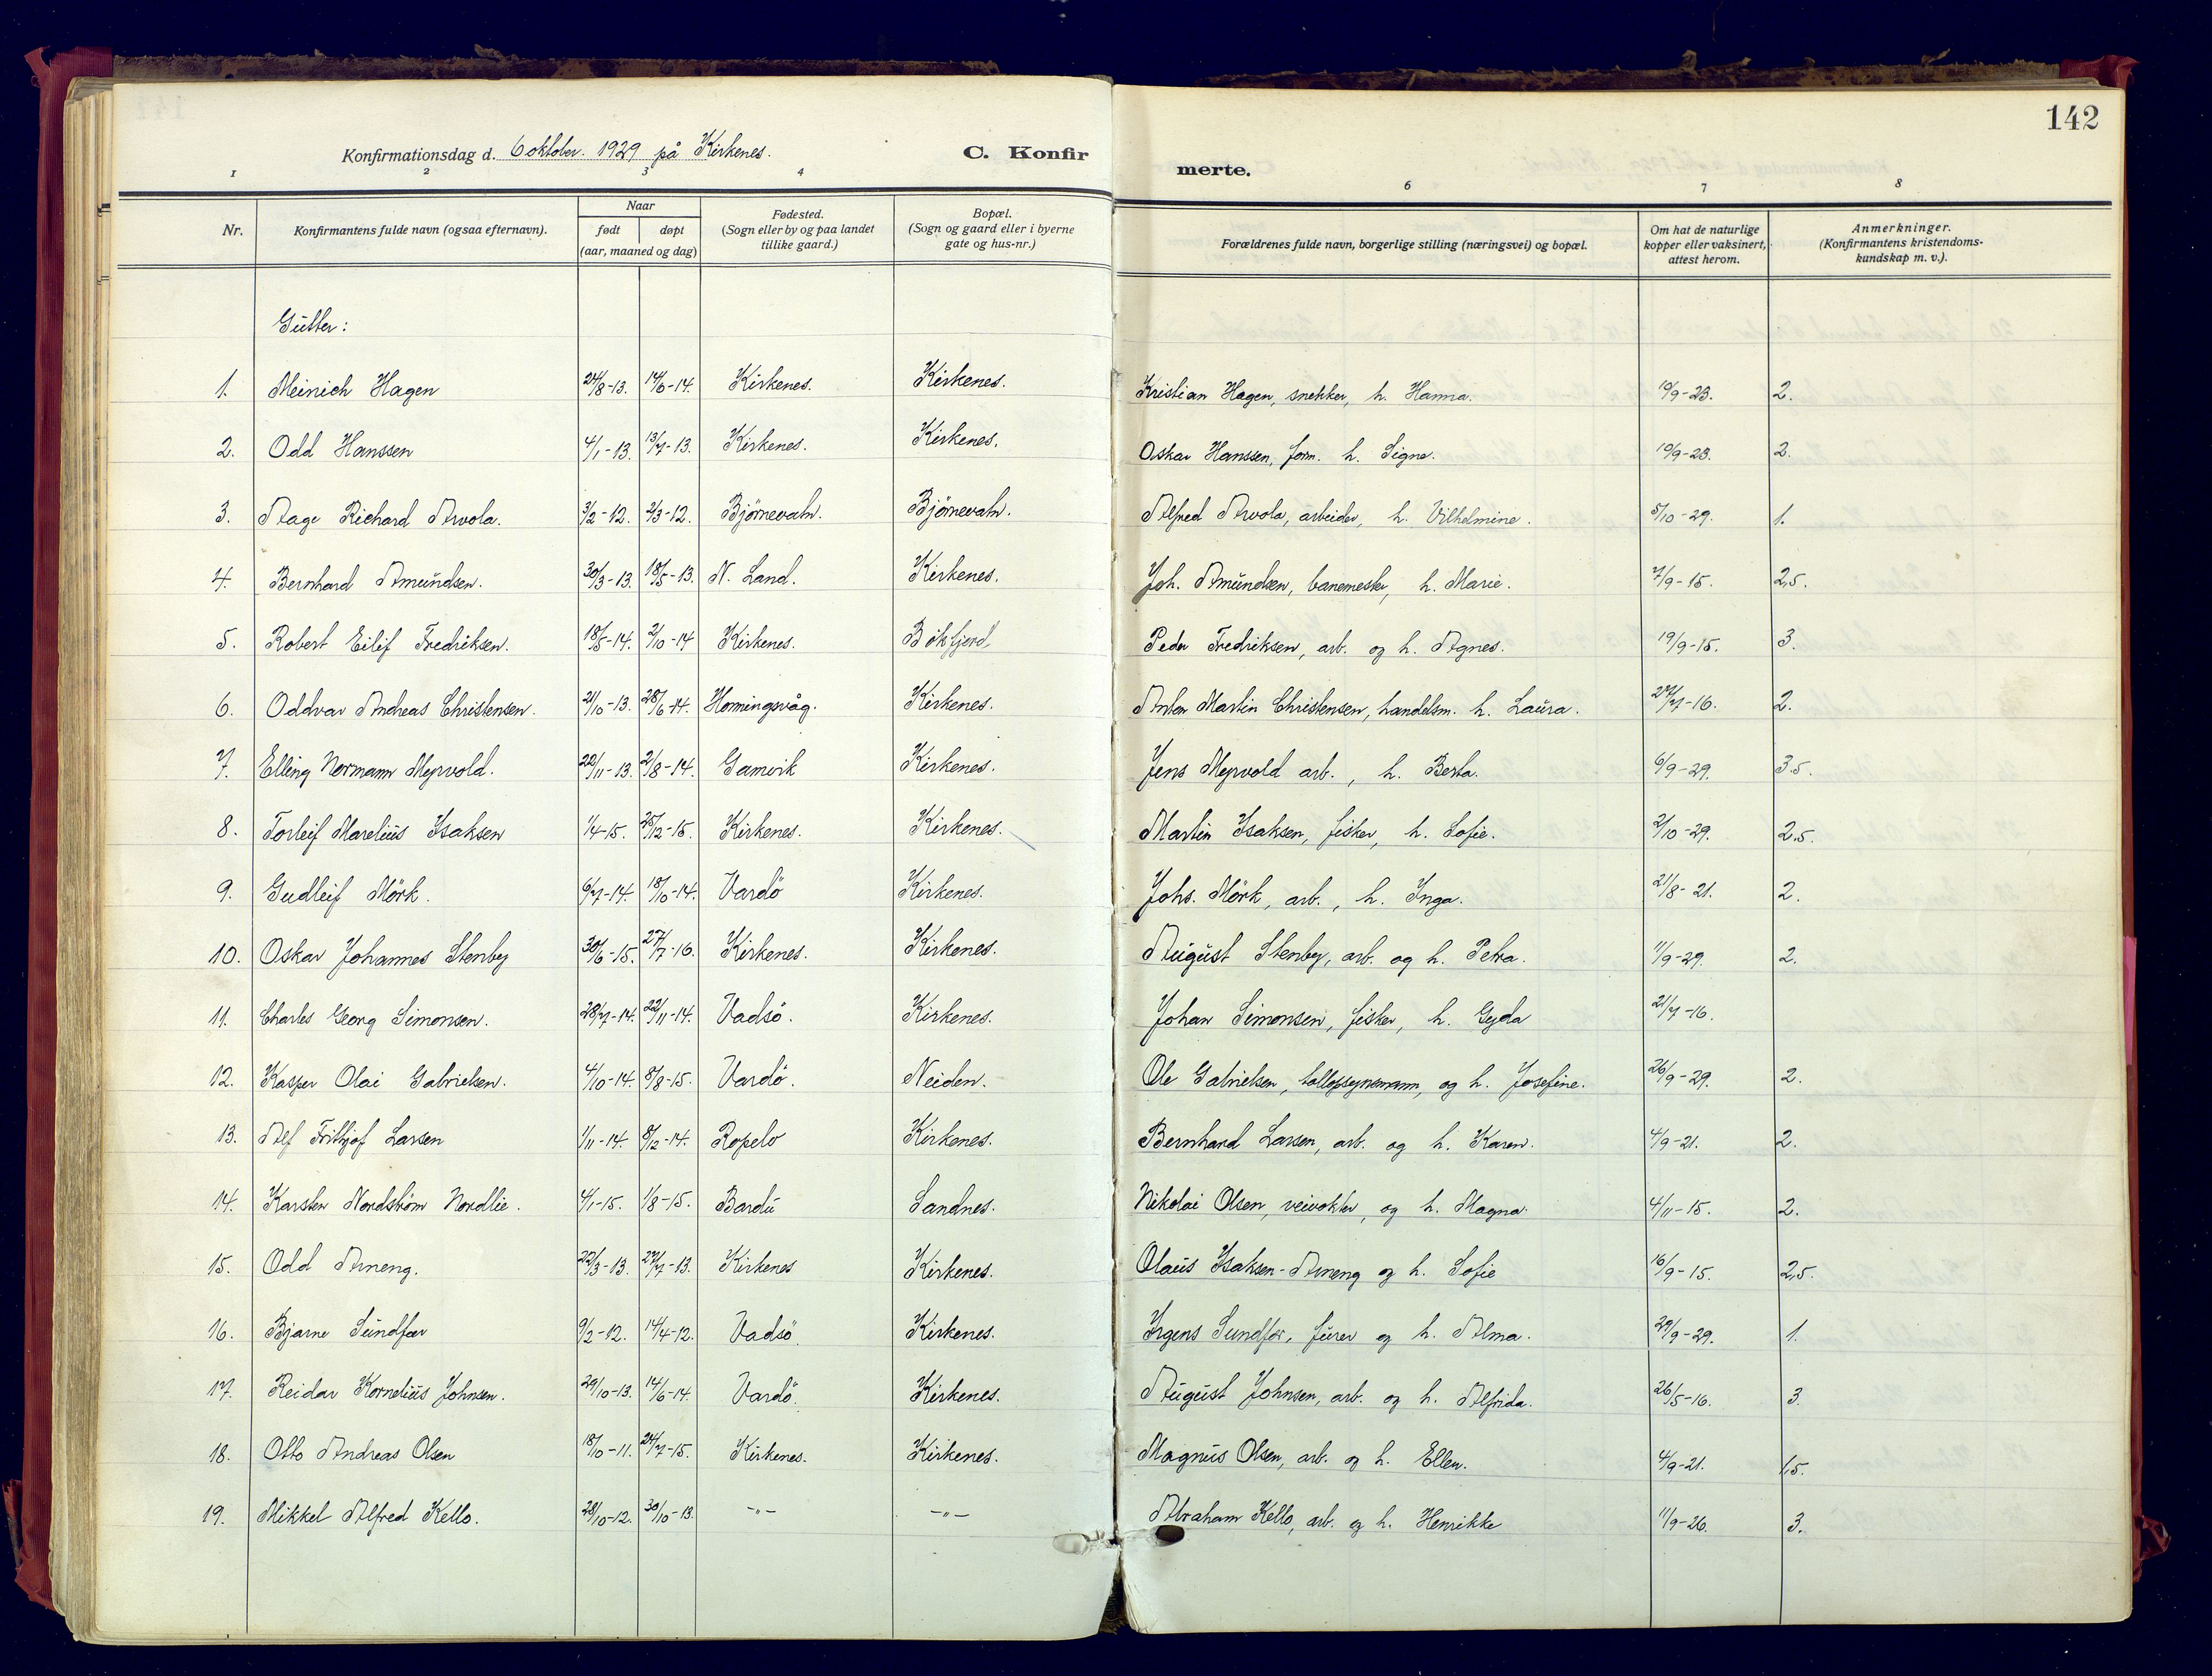 142
Konfirmationsdag d. 6 oktober. 1929 på Kirkenes.
C. Konfir
merte.
1 2 3 4 6 7 8
Nr. Konfirmantens fulde navn (ogsaa efternavn). Naar født døpt (aar, maaned og dag) Fødested. (Sogn eller by og paa landet tillike gaard.) Bopæl. (Sogn og gaard eller i byerne gate og hus-nr.) Forældrenes fulde navn, borgerlige stilling (næringsvei) og bopæl. Om hat de naturlige kopper eller vaksinert, attest herom. Anmerkninger. (Konfirmantens kristendoms-kundskap m. v.).
Gutter:
1. Meinich Hagen 24/8-13. 14/6-14. Kirkenes. Kirkenes. Kristian Hagen, snekker, h. Hanna. 10/9-23. 2.
2. Odd Hanssen 4/1-13. 13/7-13. Kirkenes. Kirkenes. Oskar Hanssen, form. h. Signe. 10/9-23. 2.
3. Aage Richard Arvola. 3/2-12. 2/3-12. Bjørnevatn. Bjørnevatn. Alfred Arvola, arbeider, h. Vilhelmine. 5/10-29. 1.
4. Bernhard Amundsen. 30/3-13. 18/5-13. N. Land. Kirkenes. Joh. Amundsen, banemester, h. Marie. 7/9-15. 2,5.
5. Robert Eilif Fredriksen. 18/5-14. 2/10-14 Kirkenes. Bökfjord, Peder Fredriksen, arb. og h. Agnes. 19/9-15. 3.
6. Oddvar Andreas Christensen. 21/10-13. 28/6-14. Honningsvåg. Kirkenes. Anton Martin Christensen, handelsm. h. Laura. 27/7-16. 2.
7. Elling Normann Myrvold. 22/11-13. 2/8-14. Gamvik Kirkenes. Jens Myrvold arb., h. Berta. 6/9-29. 3.5.
8. Torleif Marelius Isaksen 1/4-15. 25/12-15. Kirkenes. Kirkenes. Martin Isaksen, fisker, h. Sofie. 2/10-29. 2.5.
9. Gudleif Mörk. 6/7-14. 18/10-14. Vardö Kirkenes. Johs. Mörk, arb., h. Inga. 21/8-21. 2.
10. Oskar Johannes Stenby 30/6-15. 27/7-16. Kirkenes. Kirkenes. August Stenby, arb. og h. Petra. 11/9-29. 2.
11. Charles Georg Simonsen. 28/7-14. 22/11-14. Vadsö. Kirkenes. Johan Simonsen, fisker, h. Gyda 21/7-16.
12. Kasper Olai Gabrielsen. 4/10-14. 8/8-15. Vardö. Neiden. Ole Gabrielsen, tollopsynsmann, og h. Josefine. 26/9-29. 2.
13. Alf Frithjof Larsen 1/11-14. 8/12-14. Ropelv Kirkenes. Bernhard Larsen, arb. og h. Karen. 4/9-21. 2.
14. Karsten Nordstrøm Nordlie. 4/1-15. 1/8-15. Bardu Sandnes. Nikolai Olsen, veivokter, og h. Magna. 4/11-15. 2.
15. Odd Arneng. 22/3-13. 27/7-13. Kirkenes Kirkenes. Olaus Isaksen-Arneng og h. Sofie 16/9-15. 2,5.
16. Bjarne Sundfær 9/2-12. 14/4-12. Vadsö. Kirkenes. Irgens Sundfær, furer og h. Alma. 29/9-29. 1.
17. Reidar Kornelius Johnsen. 29/10-13. 14/6-14. Vardö. Kirkenes. August Johnsen, arb. og h. Alfrida. 26/5-16. 3.
18. Otto Andreas Olsen 18/10-11. 24/7-15. Kirkenes. Kirkenes. Magnus Olsen, arb. og h. Ellen. 4/9-21. 1,5.
19. Mikkel Alfred Kello. 28/10-12. 30/10-13. -"- -"- Abraham Kello, arb. og h. Henrikke 11/9-26. 3.